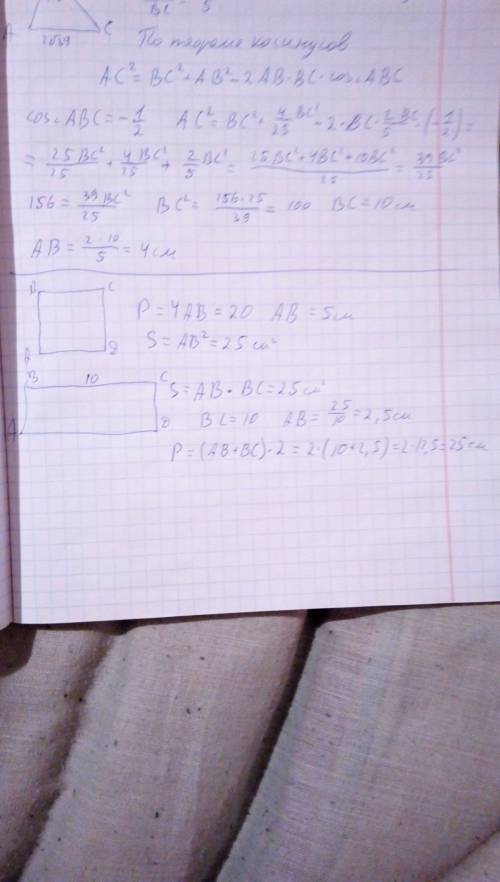 BC 5
A C
2√39
По теореме косинусов
AC² = BC² + AB² - 2AB·BC·cos∠ABC
cos∠ABC = -1/2 AC² = BC² + 4BC²/25 - 2·BC·2BC/5·(-1/2) =
= 25BC²/25 + 4BC²/25 + 2/5 BC² = 25BC²+4BC²+10BC²/25 = 39BC²/25
156 = 39BC²/25 BC² = 156·25/39 = 100 BC = 10 см
AB = 2·10/5 = 4 см
B C
P = 4AB = 20 AB = 5 см
S = AB² = 25 см²
A D
B 10 C
S = AB · BC = 25 см²
BC = 10 AB = 25/10 = 2,5 см
A D
P = (AB+BC)·2 = 2·(10+2,5) = 2·12,5 = 25 см